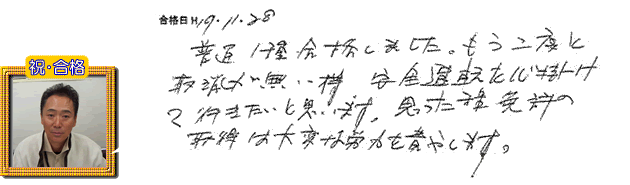 合格日 H19.11.28
祝・合格
普通1種合格しました。もう二度と
取消しが無い様 安全運転を心掛け
て行きたいと思います。思った程免許の
取得は大変な労力を費やします。